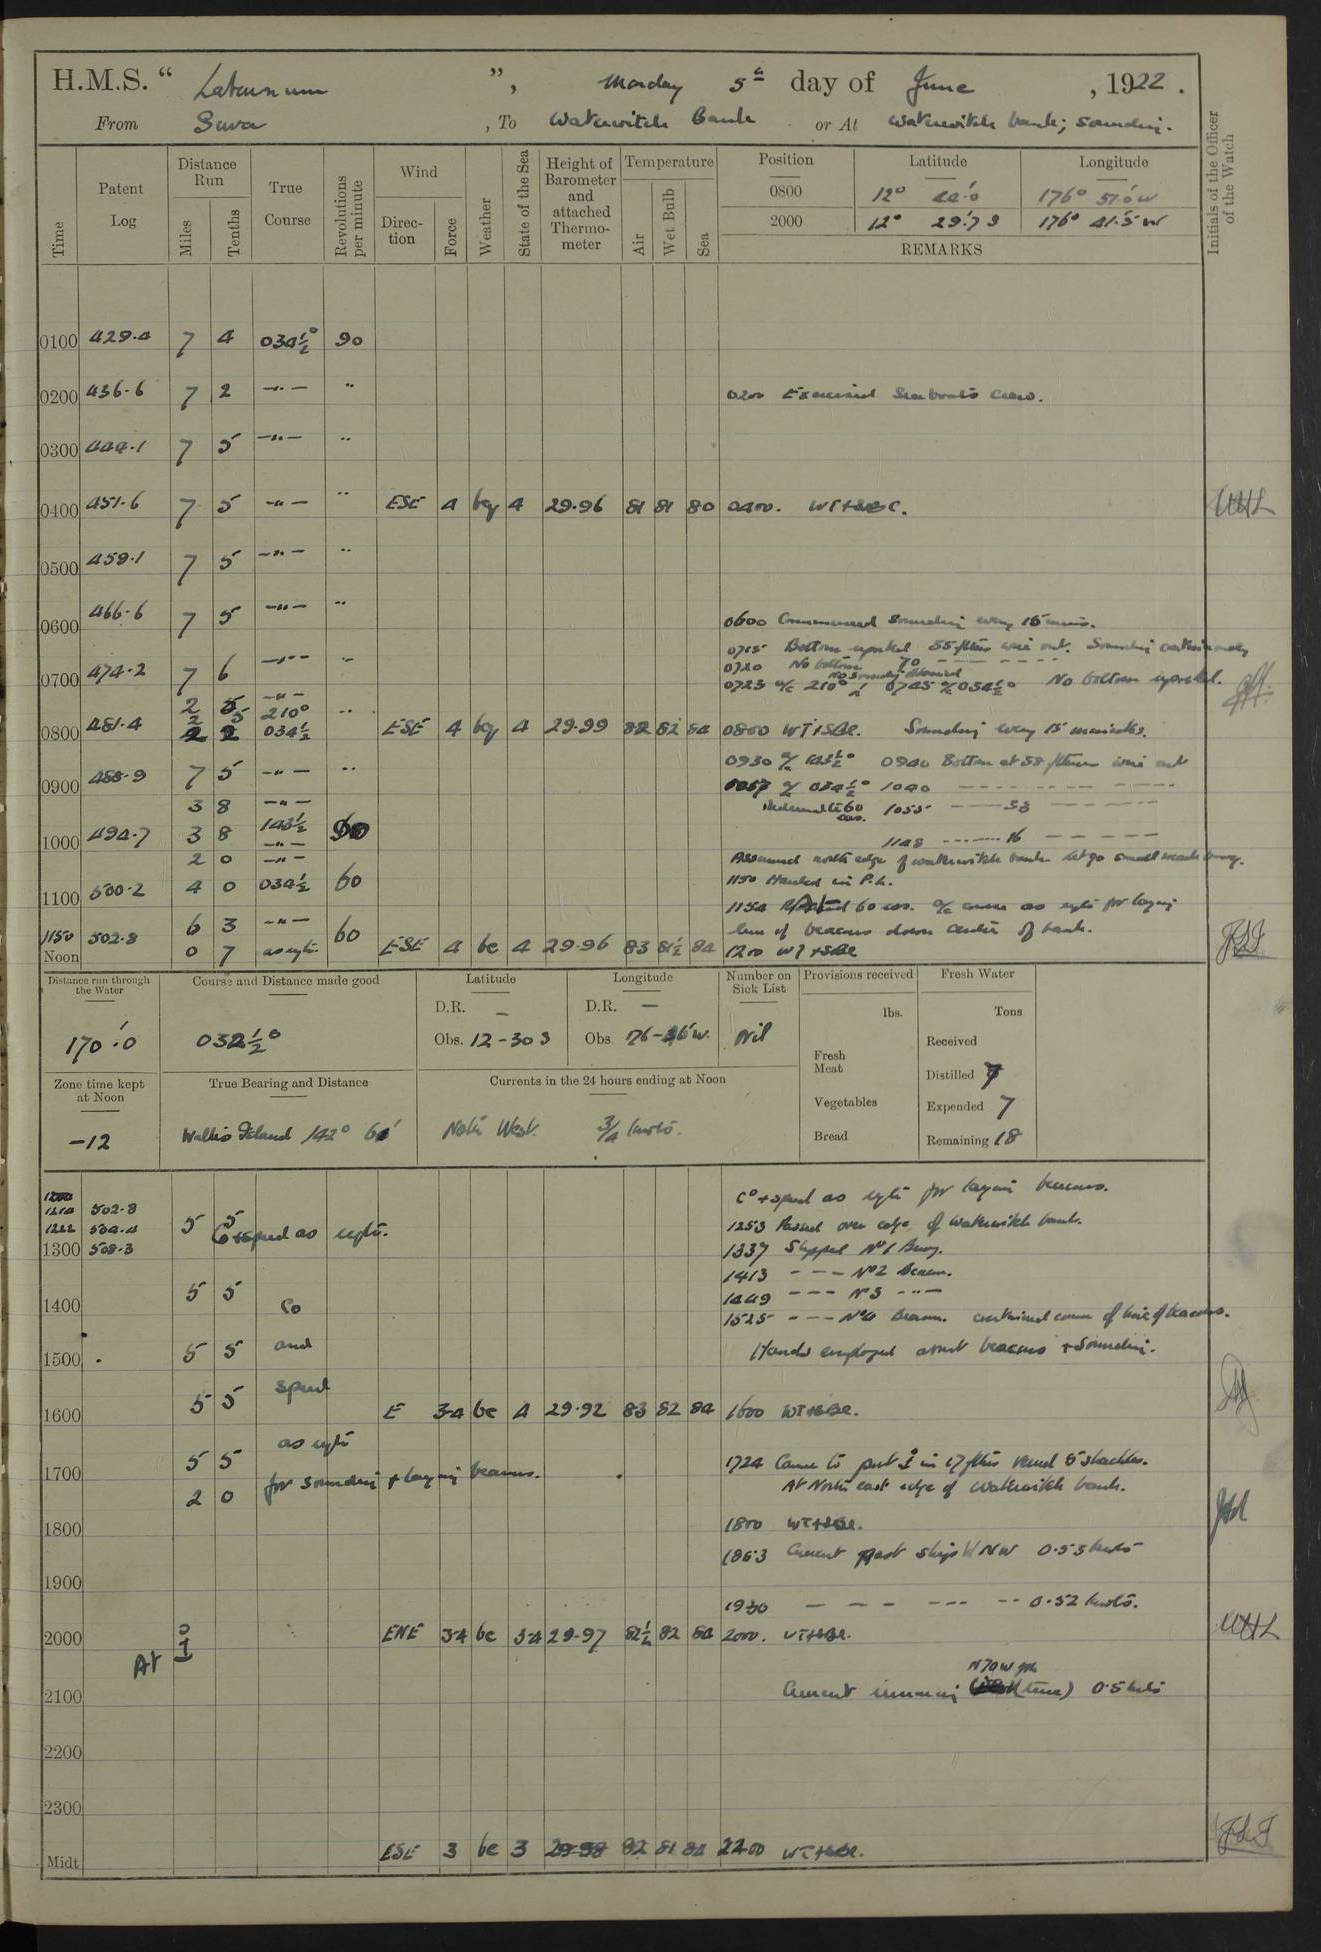 H.M.S. “ Laburnum ” , Monday 5th day of June , 1922 .
From Suva , To Waterwitch Bank or At Waterwitch bank; sounding.
Time
Patent Log
Distance Run
Miles
Tenths
True Course
Revolutions per minute
Wind
Direction
Force
Weather
State of the Sea
Height of Barometer and attached Thermometer
Temperature
Air
Wet Bulb
Sea
Position Latitude Longitude
0800 12° 44·'0 176° 51·'0 W
2000 12° 29·'7 S 176° 41·'5 W
REMARKS
Initials of the Officer of the Watch
0100 429·4 7 4 034½° 90
0200 436·6 7 2 -"- " 0200 Exercised Seaboats crew.
0300 444·1 7 5 -"- "
0400 451·6 7 5 -"- " ESE 4 bq 4 29·96 81 81 80 0400.
0500 459·1 7 5 -"- "
0600 466·6 7 5 -"- " 0600 Commenced Sounding every 15 mins.
0715 Bottom reported 55 fthms wire out. Sounding continuously
0720 No bottom 70 - - -
0700 474·2 7 6 -"- " 0723 a/c 210° 0745 a/c 034½° No bottom reported.
2 5 -"-
2 5 210°
0800 481·4 2 2 034½ " ESE 4 bq 4 29·99 82 82 84 0800 Sounding every 15 minutes.
0930 a/c 143½° 0940 Bottom at 58 fthms wire out
0900 488·9 7 5 -"- " a/c 034½° 1040 - - - -
3 8 -"- Reduced to 60 revs. 1055 - - 53 - - -
1000 494·7 3 8 143½
1148 - - - 16 - - -
2 0 -"- Assumed north edge of waterwitch bank. Let go small mark buoy.
1100 500·2 4 0 034½ 60 1150 Hauled in P.L.
6 3 -"- 1154 60 revs. a/c course as reqte for laying
1150 502·8 60 line of beacons down centre of bank.
Noon 0 7 as reqte. ESE 4 bc 4 29·96 83 81½ 84 1200
Distance run through the Water 170·'0
Course and Distance made good 032½°
Latitude D.R. – Obs. 12-30 S
Longitude D.R. – Obs.
Number on Sick List Nil
Provisions received lbs.
Fresh Meat
Vegetables
Bread
Fresh Water Tons
Received
Distilled 7
Expended 7
Remaining 18
Zone time kept at Noon -12
True Bearing and Distance Wallis Island 142°
Currents in the 24 hours ending at Noon North West. ¾ knots.
1210 502·8 Co + speed as reqte for laying beacons.
1222 504·4 5 5 Co + speed as reqte. 1253 Passed over edge of Waterwitch bank.
1300 508·3 1337 Slipped No 1 Buoy.
1413 - - - No 2 Beacon.
1400 5 5 Co 1449 - - - No 3 -"-
1525 - - - No 4 Beacon. continued course of line of beacons.
1500 5 5 and Hands employed about beacons + Sounding.
1600 5 5 speed E 3-4 bc 4 29·92 83 82 84 1600
1700 5 5 as reqte 1724 Came to port in 17 fthms veered 5 shackles.
2 0 for sounding + laying beacons. At North east edge of waterwitch bank.
1800 1800
1853 Current past ship NW 0·53 knots
1900
1930 - - - - - - 0·52 knots.
2000 At ENE 3-4 bc 3-4 29·97 82½ 82 84 2000.
N70W
Current running (true) 0·5 knots
2100
2200
2300
Midt ESE 3 bc 3 29·98 82 81 84 2400